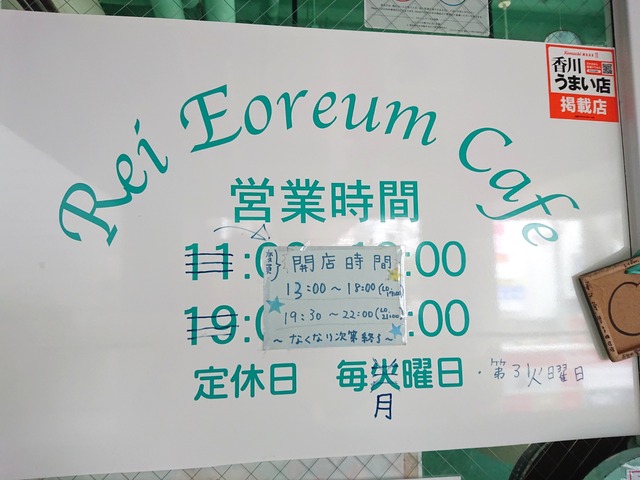 Rei Eoreum Cafe
香川
うまい店
掲載店
営業時間
11:00
:00
変更
開店時間
13:00～18:00(LO.17:00)
19:30～22:00(LO.21:00)
～なくなり次第終了～
19:0
:00
定休日 毎火曜日・第3火曜日
月